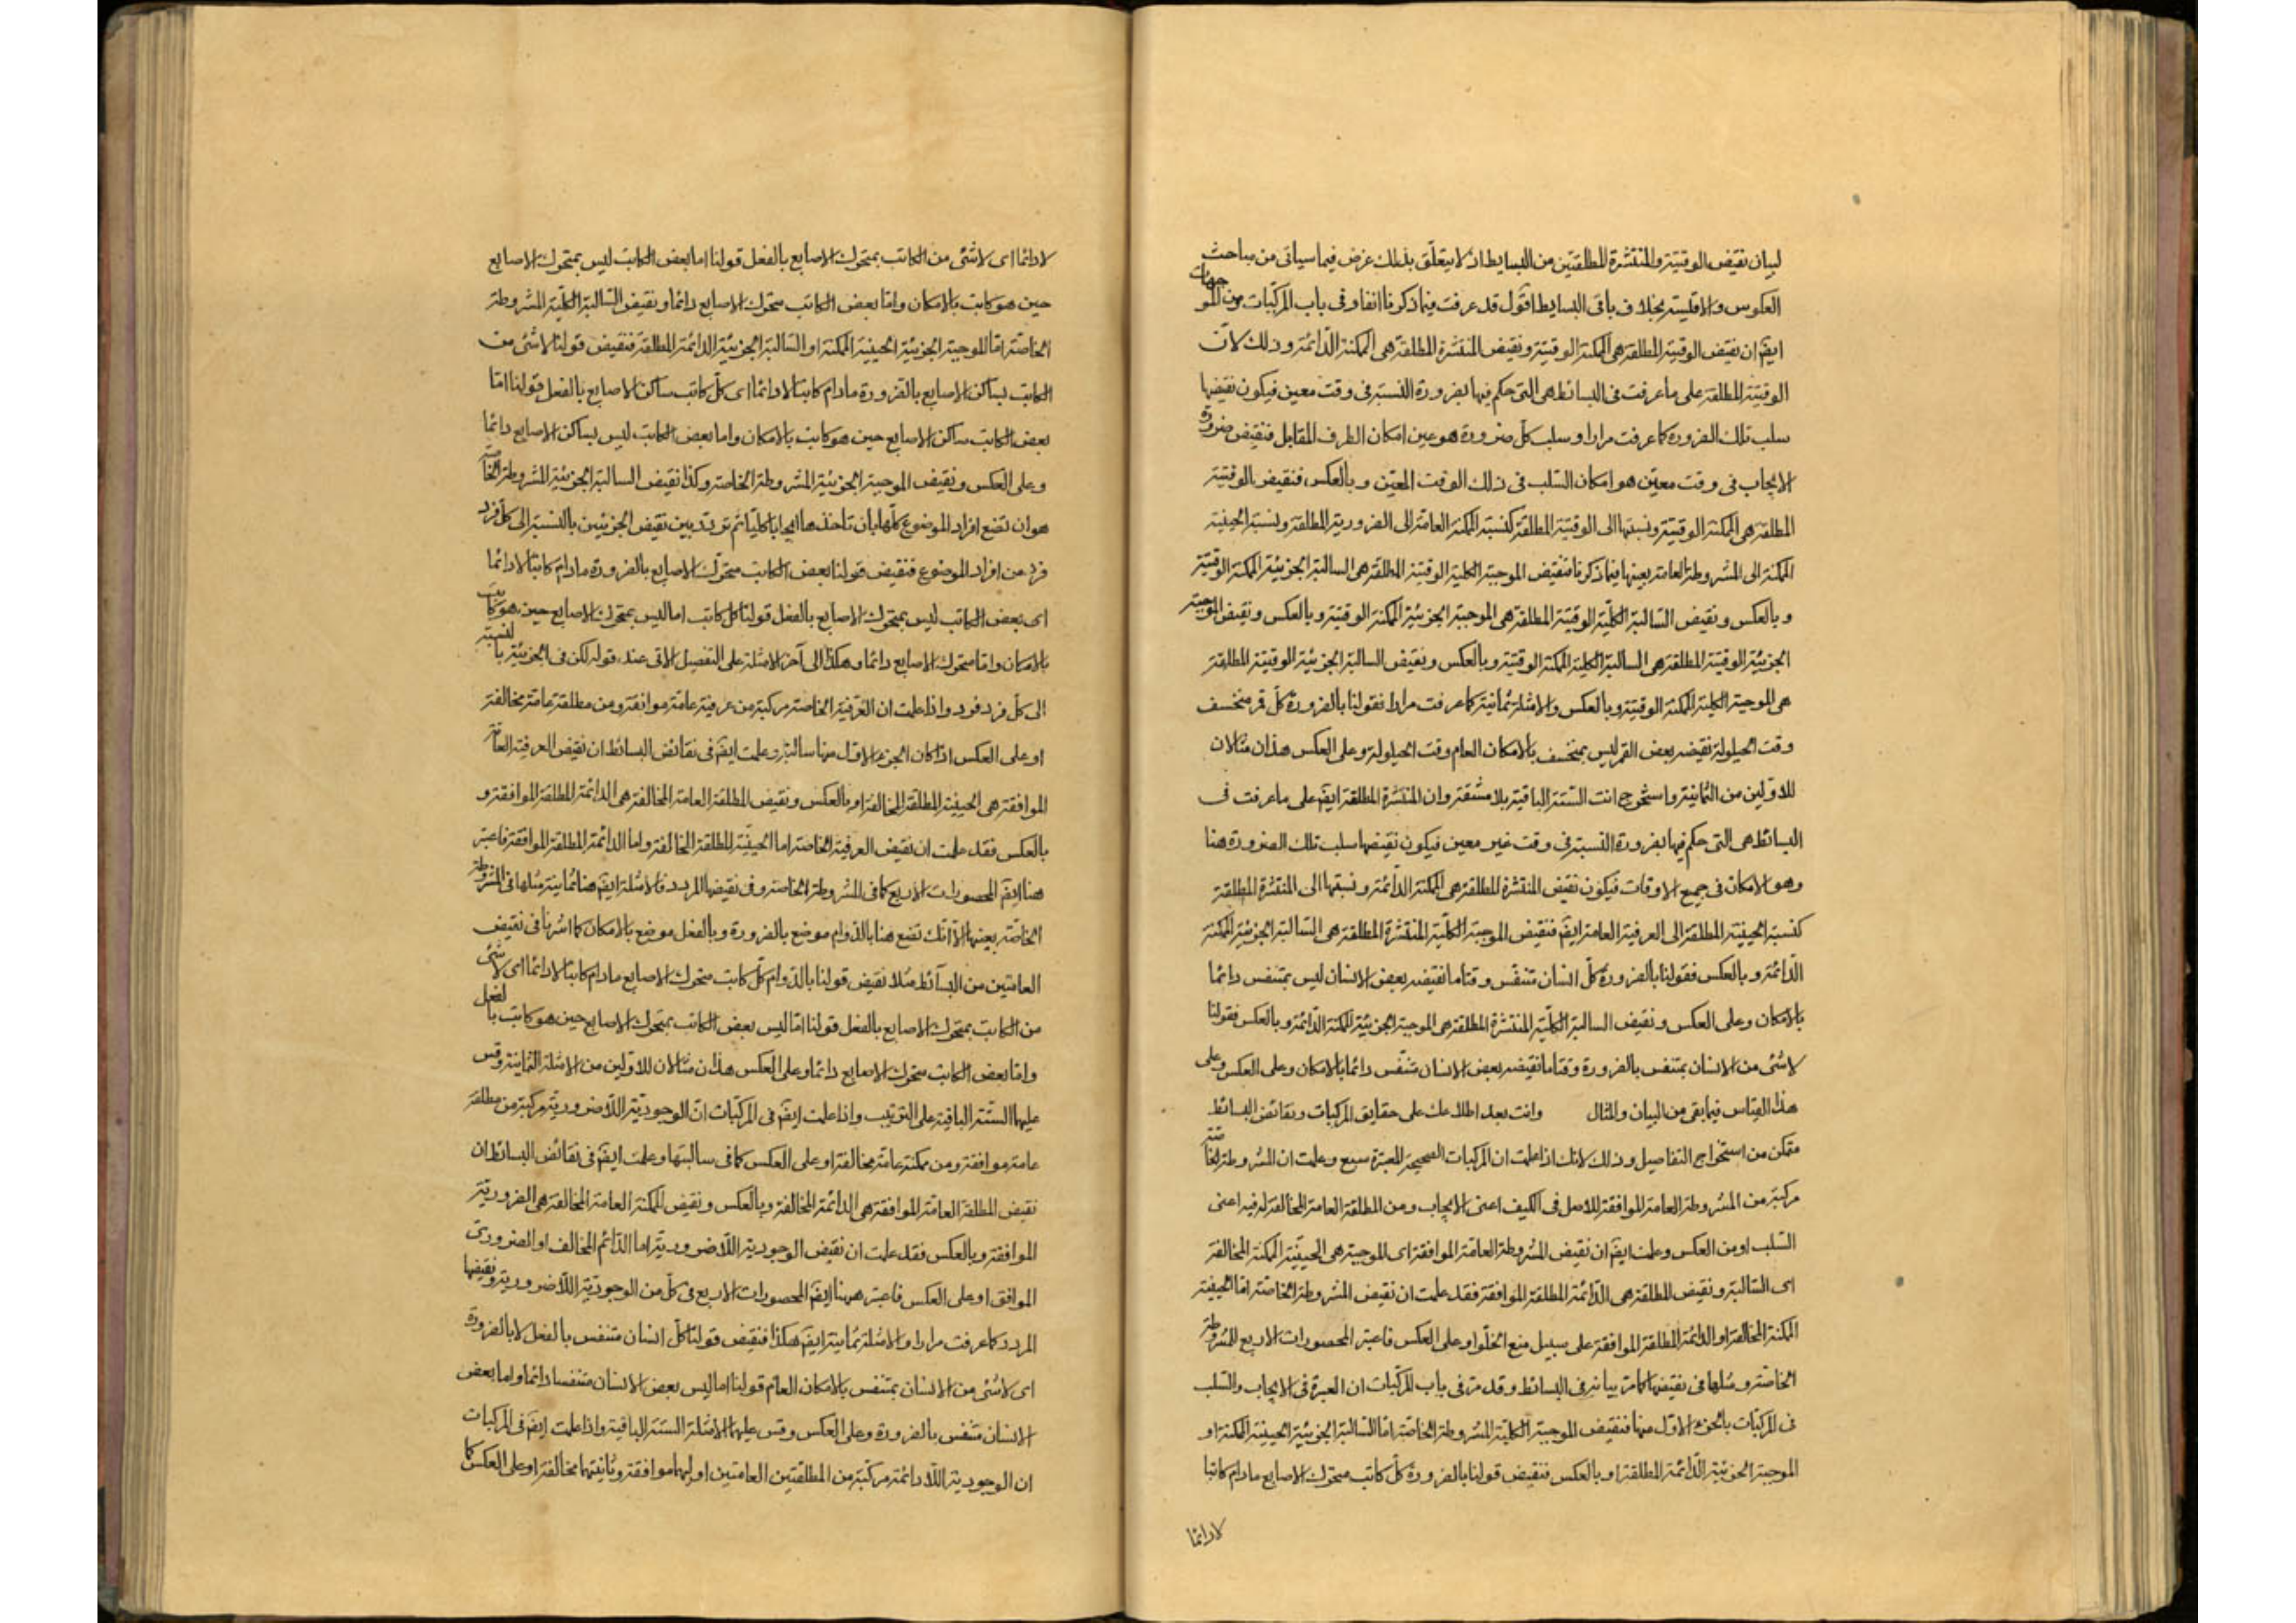 لبيان نقيض الوقتية والمنتشرة المطلقتين من البسايط اذ لا يتعلّق بذلك غرض فيما سياتى من مباحث
العكوس والاقليسة بخلاف باقى البسايط اقول قد عرفت فيما ذكرنا انفا وفى باب المركّبات من الموجهات
ايضَ ان نقيض الوقتية المطلقة هى الممكنة الوقتية ونقيض المنتشرة المطلقة هى الممكنة الدّائمة وذلك لانّ
الوقتية المطلقة على ما عرفت فى البسائط هى التى حكم فيها بضرورة النسبة فى وقت معين فيكون نقيضها
سلب تلك الضرورة كما عرفت مرارا وسلب كلّ ضرورة هو عين امكان الطرف المقابل فنقيض ضرورة
الايجاب فى وقت معيّن هو امكان السّلب فى ذلك الوقت المعيّن وبالعكس فنقيض الوقتية
المطلقة هى الممكنة الوقتية ونسبتها الى الوقتية المطلقة كنسبة الممكنة العامّة الى الضرورية المطلقة ونسبة الحينية
الممكنة الى المشروطة العامة بعينها فيما ذكرنا فنقيض الموجبة الكلية الوقتية المطلقة هى السالبة الجزئية الممكنة الوقتية
وبالعكس ونقيض السّالبة الكلّية الوقتية المطلقة هى الموجبة الجزئية الممكنة الوقتية وبالعكس ونقيض الموجبة
الجزئية الوقتية المطلقة هى السالبة الكلية الممكنة الوقتية وبالعكس ونقيض السالبة الجزئية الوقتية المطلقة
هى الموجبة الكلية الممكنة الوقتية وبالعكس والامثلة ثمانية كما عرفت مرارا فقولنا بالضرورة كلّ قمر منخسف
وقت الحيلولة نقيضه بعض القمر ليس بمنخسف بالامكان العام وقت الحيلولة وعلى العكس هذان مثالان
للاوّلين من الثمانية واستخرج انت الستّة الباقية بلا مشقة وان المنتشرة المطلقة ايضَ على ما عرفت فى
البسائط هى التى حكم فيها بضرورة النسبة فى وقت غير معين فيكون نقيضها سلب تلك الضرورة هنا
وهو الامكان فى جميع الاوقات فيكون نقيض المنتشرة المطلقة هى الممكنة الدّائمة ونسبتها الى المنتشرة المطلقة
كنسبة الحينية المطلقة الى العرفية العامة ايضَ فنقيض الموجبة الكلّية المنتشرة المطلقة هى السّالبة الجزئية الممكنة
الدّائمة وبالعكس فقولنا بالضرورة كلّ انسان متنفّس وقتاما نقيضه بعض الانسان ليس بمتنفس دائما
بالامكان وعلى العكس ونقيض السالبة الكلّية المنتشرة المطلقة هى الموجبة الجزئية الممكنة الدائمة وبالعكس فقولنا
لاشئ من الانسان بمتنفس بالضرورة وقتاما نقيضه بعض الانسان متنفّس دائما بالامكان وعلى العكس وعلى
هذا القياس فيما بقى من البيان والمثال وانت بعد اطلاعك على حقايق المركبات ونقائض البسائط
متمكن من استخراج التفاصيل وذلك لانك اذا علمت ان المركبات الصحيحة المعتبرة سبع وعلمت ان المشروطة الخاصة
مركبة من المشروطة العامة الموافقة للاصل فى الكيف اعنى الايجاب ومن المطلقة العامة المخالفة له فيه اعنى
السّلب او من العكس وعلمت ايضَ ان نقيض المشروطة العامّة الموافقة اى الموجبة هى الحينيّة الممكنة المخالفة
اى السّالبة ونقيض المطلقة هى الدّائمة المطلقة الموافقة فقد علمت ان نقيض المشروطة الخاصّة امّا الحينية
الممكنة المخالفة او الدّائمة المطلقة الموافقة على سبيل منع الخلّو او على العكس فاعتبر المحصورات الاربع للمشروطة
الخاصّة ومثلها فى نقيضها كما مرّ بيانه فى البسائط وقد مرّ فى باب المركّبات ان العبرة فى الايجاب والسّلب
فى المركّبات بالجزء الاوّل منها فنقيض الموجبة الكلّية المشروطة الخاصّة امّا السّالبة الجزئية الحينية الممكنة او
الموجبة الجزئية الدّائمة المطلقة او بالعكس فنقيض قولنا بالضرورة كلّ كاتب متحرّك الاصابع مادام كاتبا
لادائما
لادائما اى لاشئ من الكاتب بمتحرّك الاصابع بالفعل قولنا اما بعض الكاتب ليس بمتحرّك الاصابع
حين هو كاتب بالامكان وامّا بعض الكاتب متحرّك الاصابع دائما ونقيض السّالبة الكلّية المشروطة
الخاصّة امّا الموجبة الجزئيّة الحينية الممكنة او السّالبة الجزئيّة الدائمة المطلقة فنقيض قولنا لاشئ من
الكاتب بساكن الاصابع بالضرورة مادام كاتبا لادائما اى كلّ كاتب ساكن الاصابع بالفعل قولنا امّا
بعض الكاتب ساكن الاصابع حين هو كاتب بالامكان واما بعض الكاتب ليس بساكن الاصابع دائما
وعلى العكس ونقيض الموجبة الجزئيّة المشروطة الخاصّة وكذا نقيض السالبة الجزئيّة المشروطة الخاصة
هو ان تضع افراد الموضوع كلّها بان تاخذها ايجابا كليّا ثم تردّد بين نقيض الجزئين بالنّسبة الى كلّ فرد
فرد من افراد الموضوع فنقيض قولنا بعض الكاتب متحرّك الاصابع بالضرورة مادام كاتبا لادائما
اى بعض الكاتب ليس بمتحرّك الاصابع بالفعل قولنا كلّ كاتب اما ليس بمتحرّك الاصابع حين هو كاتب
بالامكان وامّا متحرّك الاصابع دائما وهكذا الى آخر الامثلة على التفصيل الآتى عند قوله لكن فى الجزئيّة بالنسبة
الى كلّ فرد فرد واذا علمت ان العرفية الخاصة مركبة من عرفية عامّة موافقة ومن مطلقة عامّة مخالفة
او على العكس اذا كان الجزء الاوّل منها سالبة وعلمت ايضَ فى نقائض البسائط ان نقيض العرفية العامّة
الموافقة هى الحينيّة المطلقة المخالفة او بالعكس ونقيض المطلقة العامّة المخالفة هى الدّائمة المطلقة الموافقة و
بالعكس فقد علمت ان نقيض العرفية الخاصّة اما الحينيّة المطلقة المخالفة واما الدائمة المطلقة الموافقة فاعتبر
هنا ايضَ المحصورات الاربع كما فى المشروطة الخاصّة وفى نقيضها المردد فالامثلة ايضَ هنا ثمانية مثلها فى المشروطة
الخاصّة بعينها الّا انّك تضع هنا بالدّوام موضع بالضرورة وبالفعل موضع بالامكان كما اشرنا فى نقيض
العامّتين من البسآئط مثلا نقيض قولنا بالدّوام كلّ كاتب متحرّك الاصابع مادام كاتبا لادائما اى لاشئ
من الكاتب بمتحرّك الاصابع بالفعل قولنا امّا ليس بعض الكاتب بمتحرّك الاصابع حين هو كاتب بالفعل
وامّا بعض الكاتب متحرّك الاصابع دائما وعلى العكس هذان مثالان للاوّلين من الامثلة الثمانية وقس
عليها الستّة الباقية على الترتيب واذا علمت ايضَ فى المركّبات انّ الوجوديّة اللّاضروريّة مركبة من مطلقة
عامة موافقة ومن ممكنة عامّة مخالفة او على العكس كما فى سالبتها وعلمت ايضَ فى نقائض البسائط ان
نقيض المطلقة العامّة الموافقة هى الدّائمة المخالفة وبالعكس ونقيض الممكنة العامة المخالفة هى الضروريّة
الموافقة وبالعكس فقد علمت ان نقيض الوجودية اللّاضروريّة اما الدّائم المخالف او الضرورىّ
الموافق او على العكس فاعتبر ههنا ايضَ المحصورات الاربع فى كلّ من الوجوديّة اللّاضروريّة ونقيضها
المردد كما عرفت مرارا والامثلة ثمانية ايضَ هكذا فنقيض قولنا كلّ انسان متنفس بالفعل لا بالضرورة
اى لاشئ من الانسان بمتنفس بالامكان العام قولنا اما ليس بعض الانسان متنفسا دائما واما بعض
الانسان متنفس بالضرورة وعلى العكس وقس عليهما الامثلة الستة الباقية واذا علمت ايضَ فى المركبات
ان الوجودية اللّادائمة مركّبة من المطلقتين العامتين اوليهما موافقة وثانيتهما مخالفة او على العكس كما